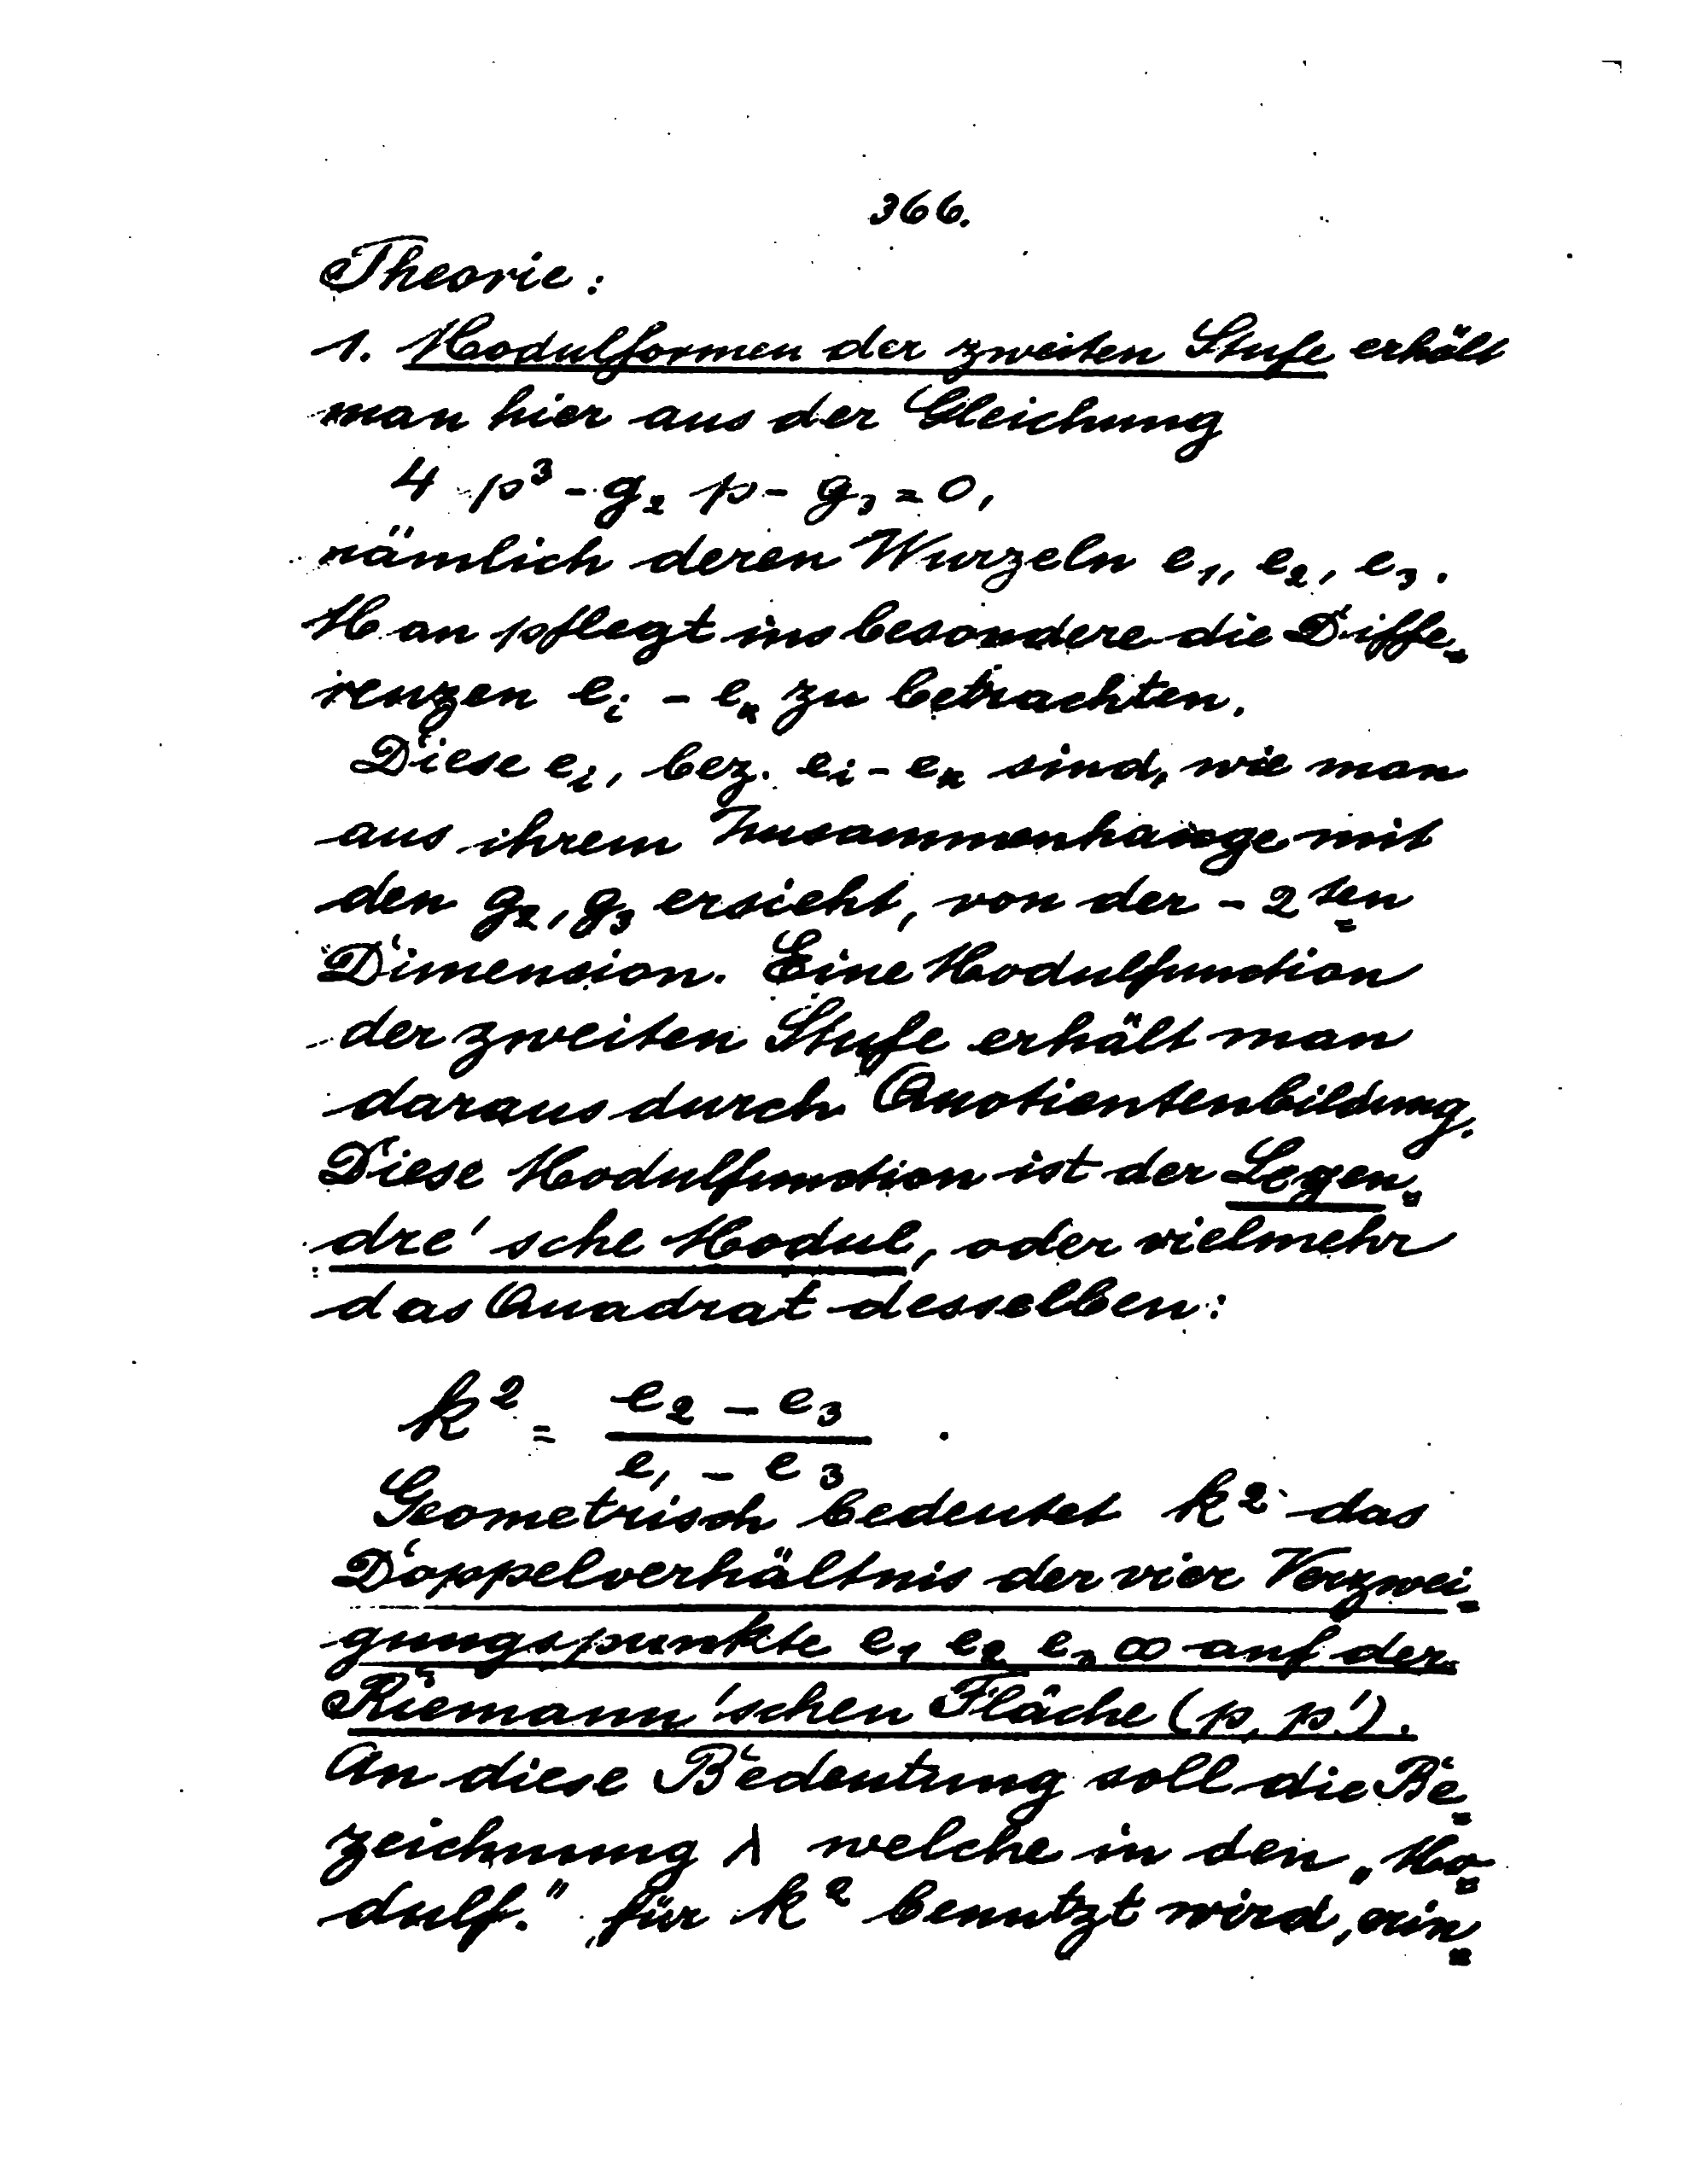 366.
Theorie:
1. Modulformen der zweiten Stufe erhält
man hier aus der Gleichung
4 p³ - g₂ p - g₃ = 0,
nämlich deren Wurzeln e₁, e₂, e₃.
Man pflegt insbesondere die Diffe=
renzen eᵢ - eₖ zu betrachten.
Diese eᵢ, bez. eᵢ - eₖ sind, wie man
aus ihrem Zusammenhange mit
den g₂, g₃ ersieht, von der - 2ten
Dimension. Eine Modulfunction
der zweiten Stufe erhält man
daraus durch Quotientenbildung.
Diese Modulfunction ist der Legen=
dre'sche Modul, oder vielmehr
das Quadrat desselben:
k² = (e₂ - e₃) / (e₁ - e₃) .
Geometrisch bedeutet k² das
Doppelverhältnis der vier Verzwei=
gungspunkte e₁ e₂ e₃ ∞ auf der
Riemann'schen Fläche (p, p').
An diese Bedeutung soll die Be=
zeichnung λ welche in den „Mo=
dulf." für k² benutzt wird, erin=